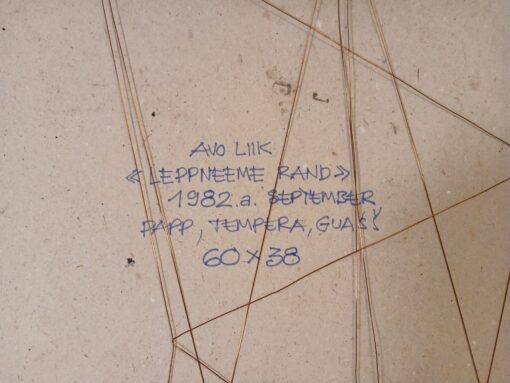 AVO LIIK
«LEPPNEEME RAND»
1982.a. SEPTEMBER
PAPP, TEMPERA, GUAŠŠ
60×38